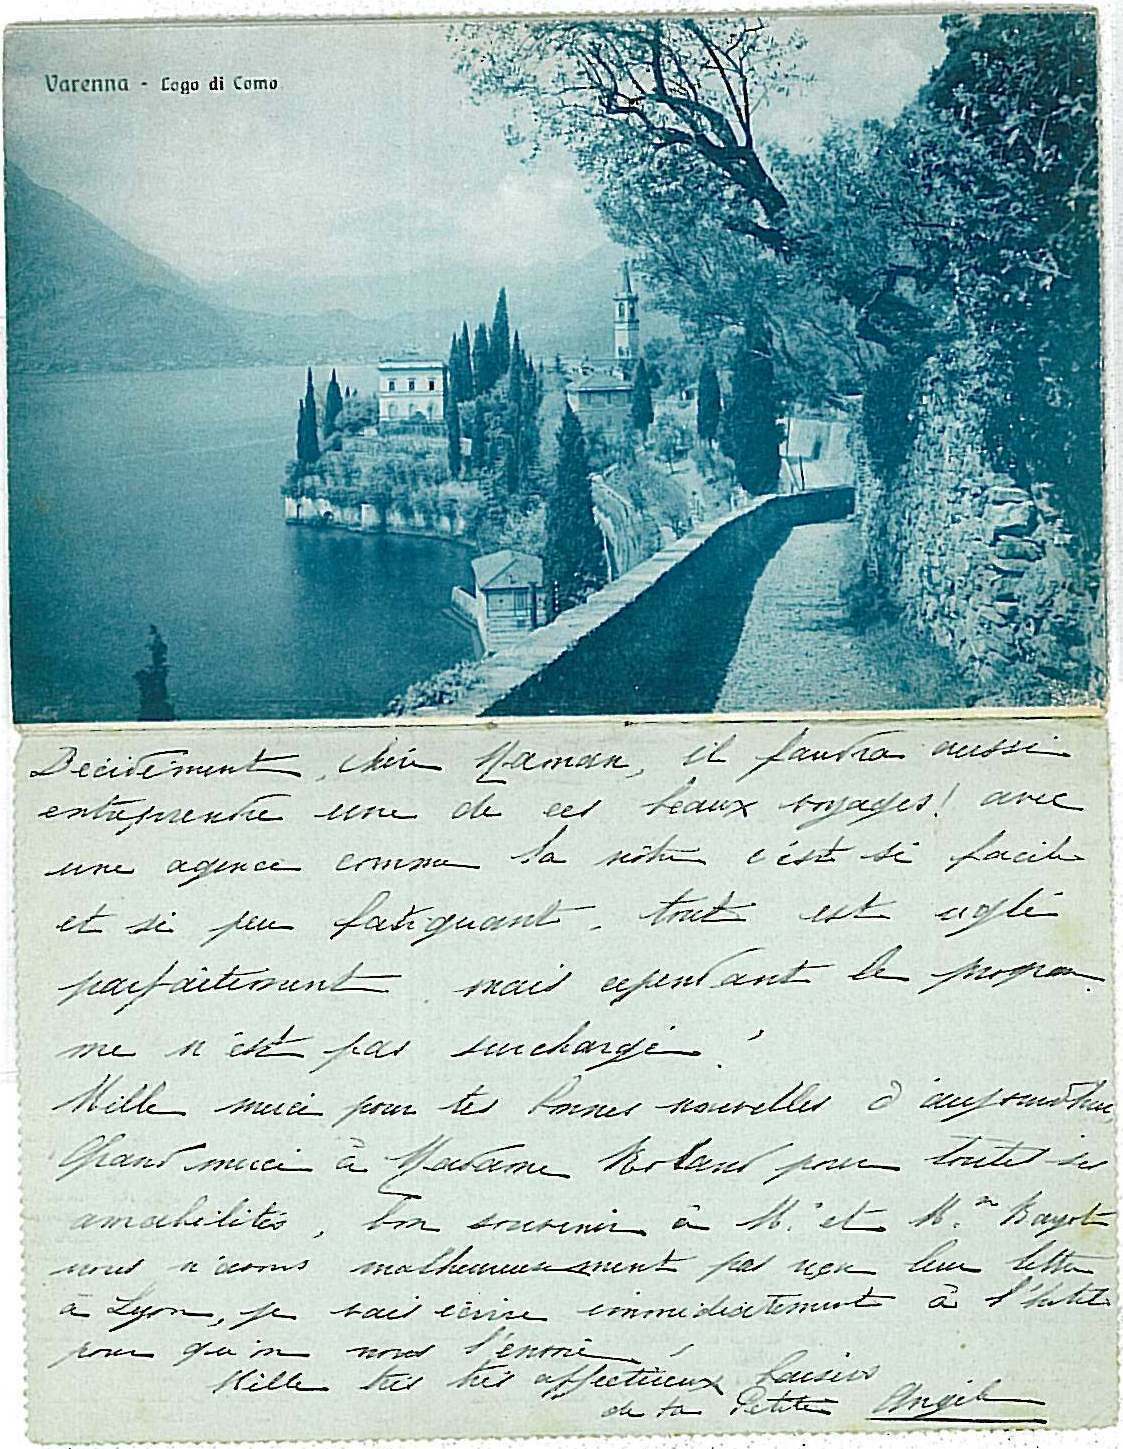 Varenna - Lago di Como
Décidément, chère Maman, il faudra aussi
entreprendre une de ces beaux voyages! avec
une agence comme la nôtre c'est si facile
et si peu fatiguant. tout est réglé
parfaitement. mais cependant le program
me n'est pas surchargé!
Mille merci pour tes bonnes nouvelles d'aujourd'hui,
Grand merci à Madame Roland pour toutes ses
amabilités, bon souvenir à M. et Mme
nous n'avons malheureusement pas reçu leur lettre
à Lyon, je vais écrire immédiatement à l'hôtel
pour qu'on nous l'envoie!
Mille très très affectueux baisers
de ta Petite Angèle